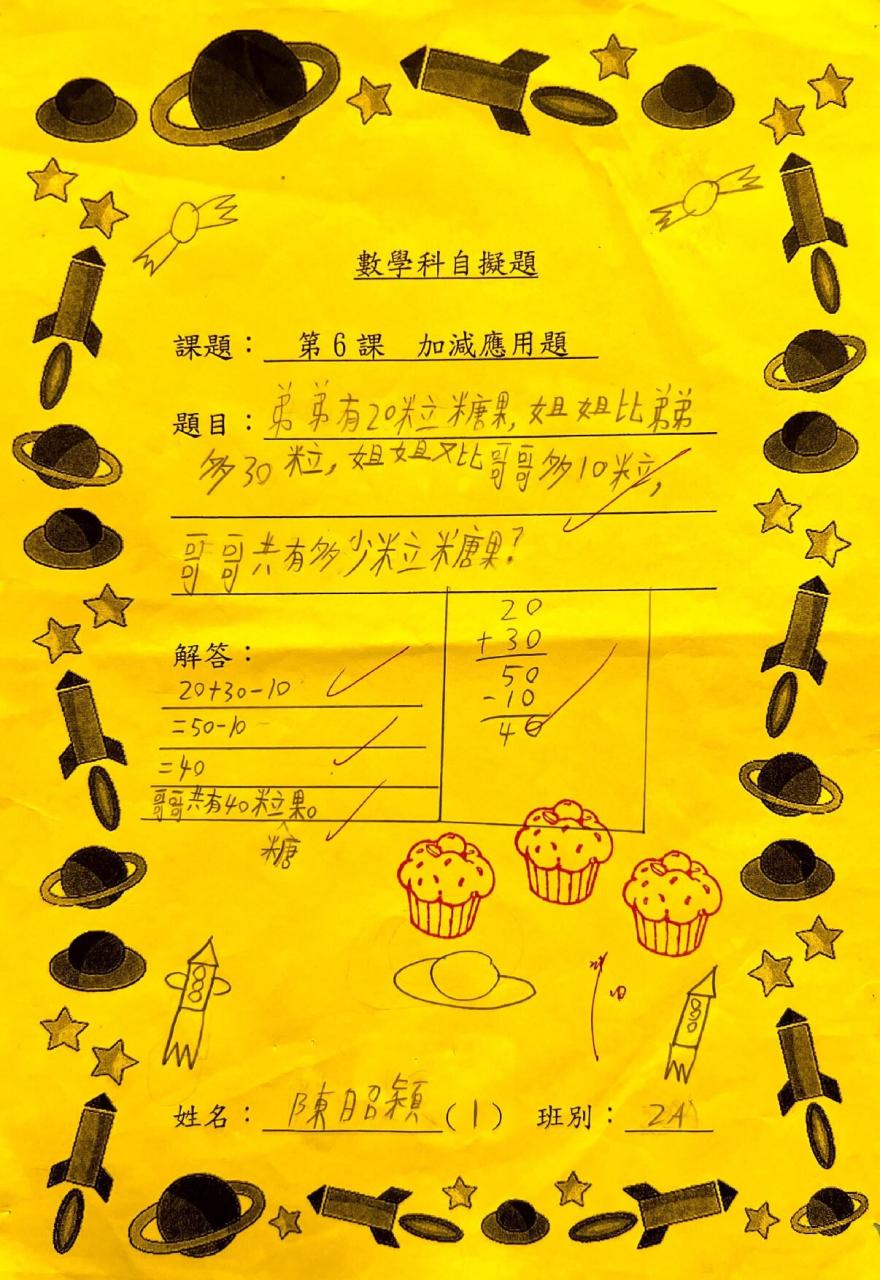 數學科自擬題
課題：第6課 加減應用題
題目：弟弟有20粒糖果，姐姐比弟弟
多30粒，姐姐又比哥哥多10粒，
哥哥共有多少粒糖果？
解答：
20+30-10
=50-10
=40
哥哥共有40粒果。
糖
20
+30
50
-10
40
姓名：陳昭穎（1） 班別：2A